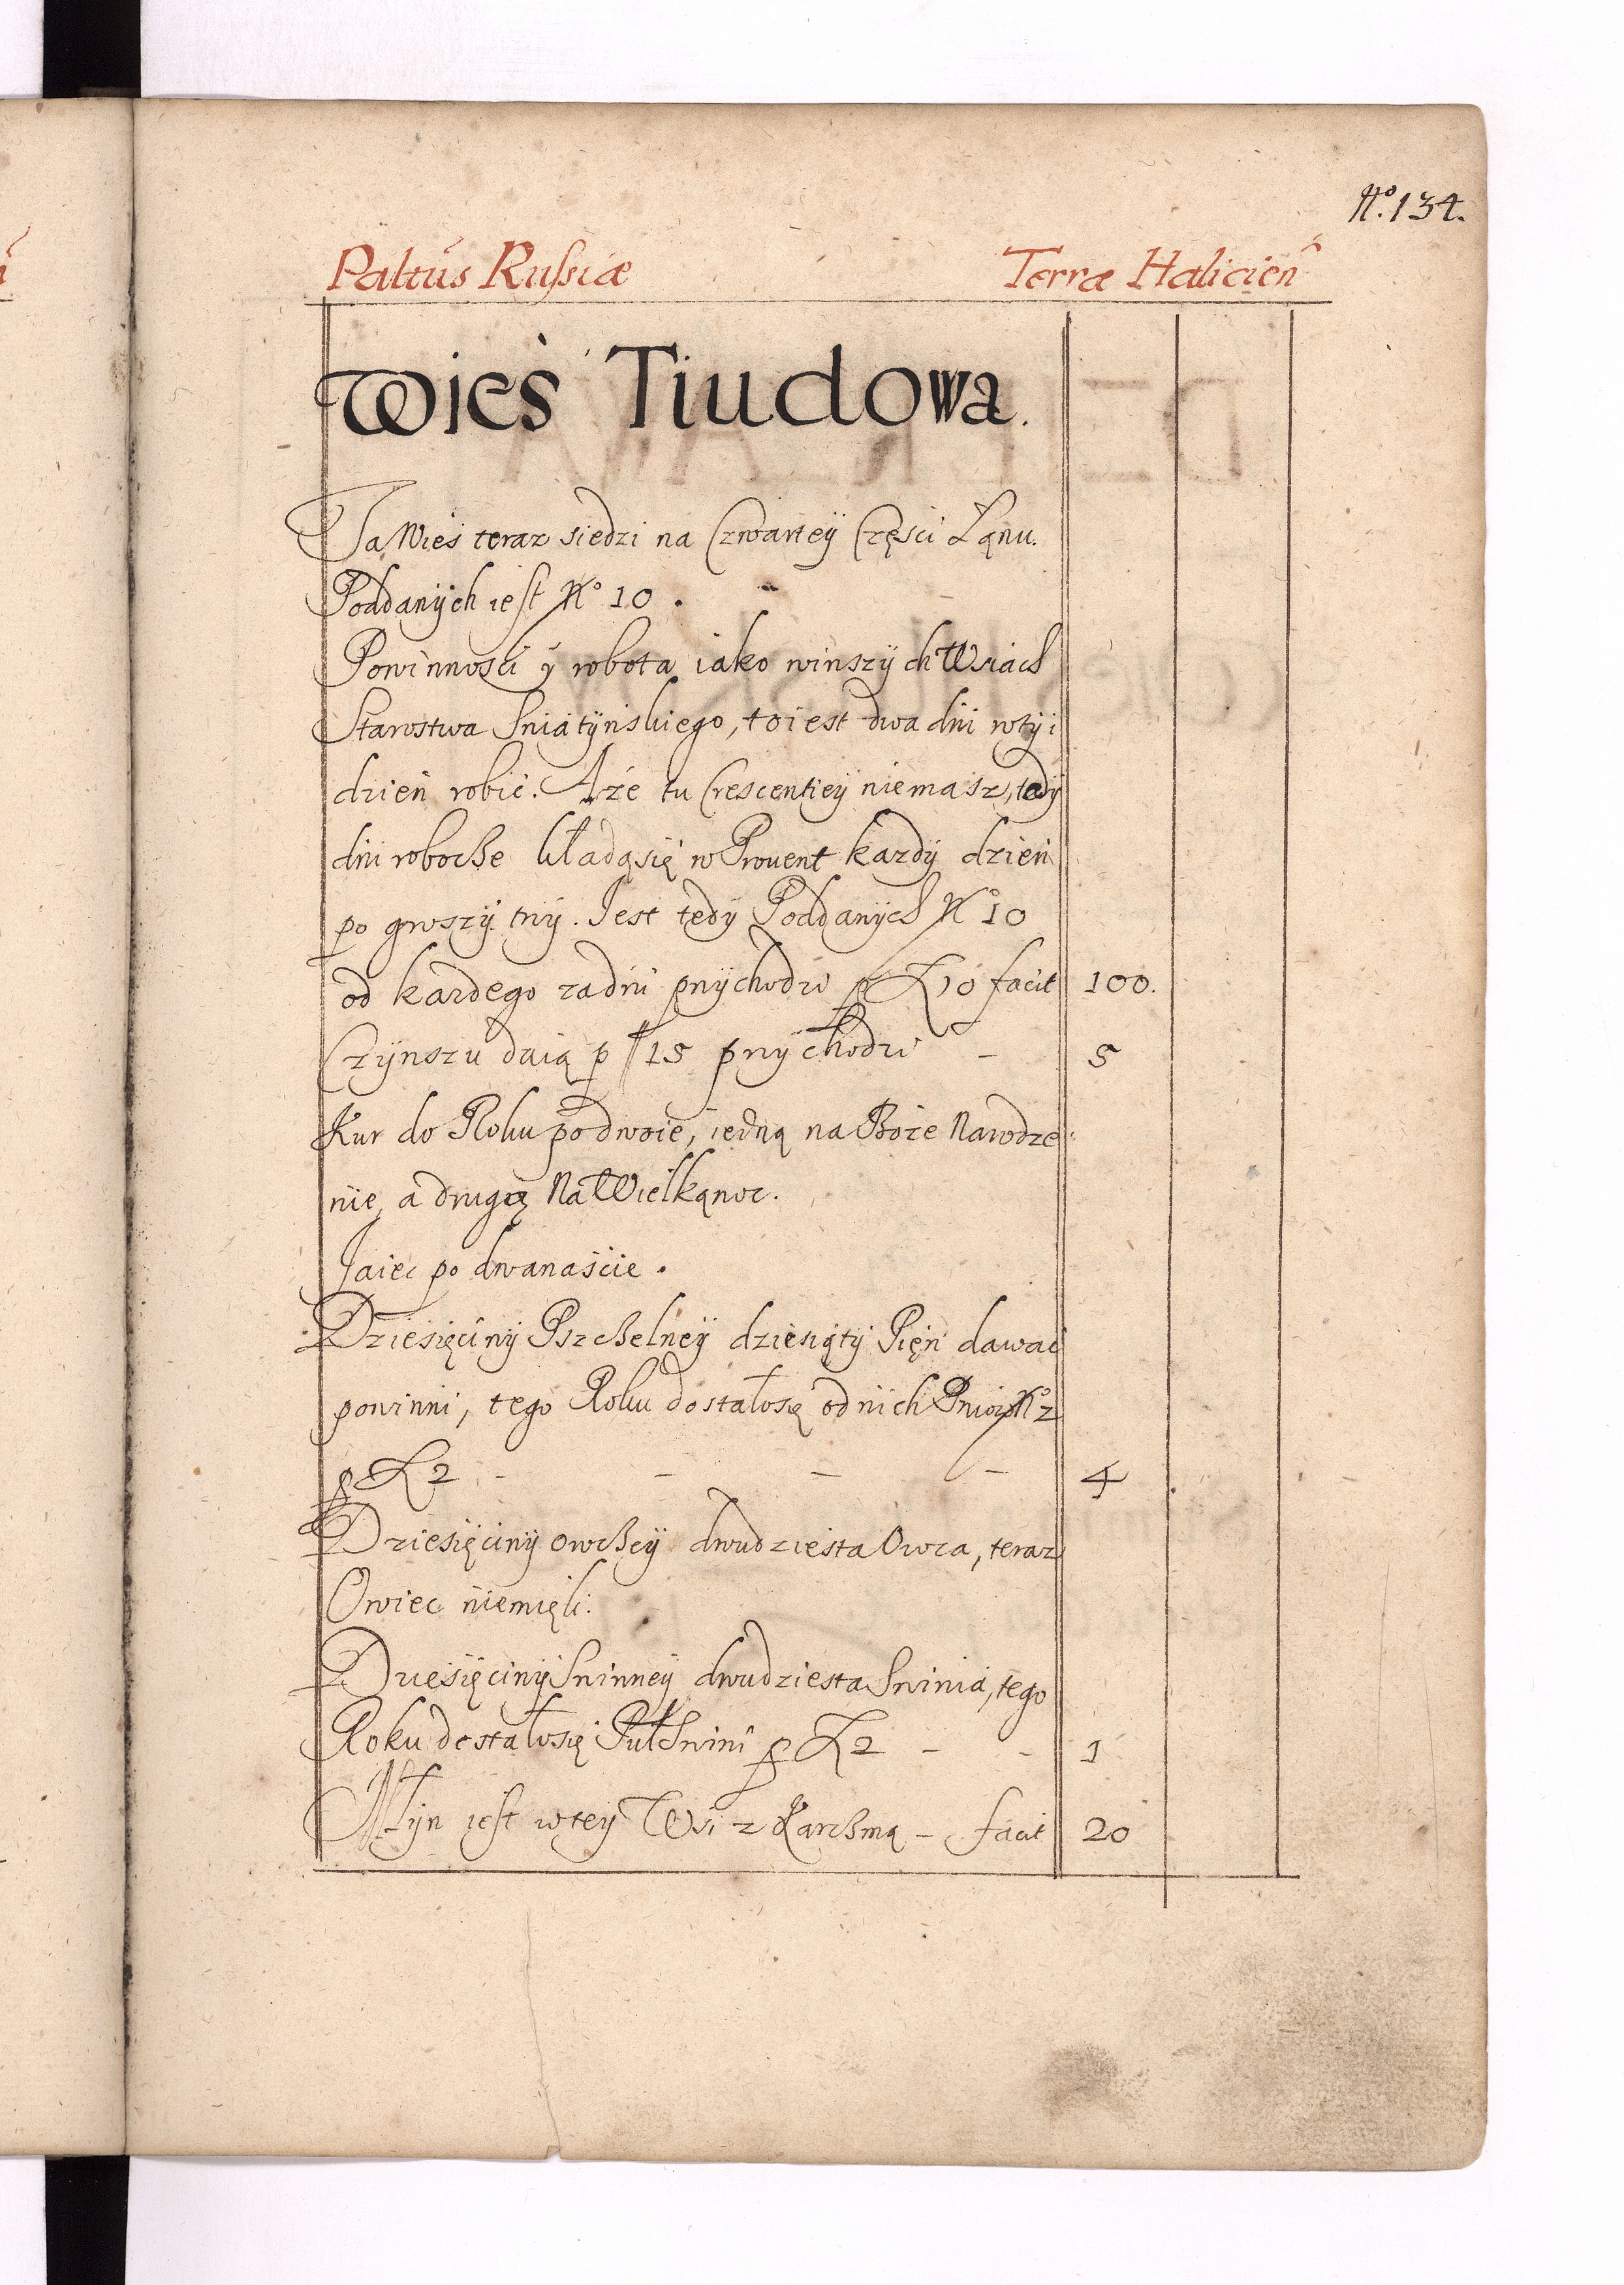 No. 134.
Paltus Russiæ Terræ Halicien
Wieś Tiudowa.
Ta Wieś teraz siedzi na Czwartey Części Łanu.
Poddanych iest No 10.
Powinności y robota iako w inszych Wsiach
Starostwa Sniatynskiego, to iest dwa dni w tyi
dzień robić. A że tu Crescentiey nie masz, tedy
dni robocze kładą się w Prouent kazdy dzień
po groszy trzy. Jest tedy Poddanych No 10
od kazdego za dni przychodzi p Zł 10 facit 100.
Czynszu daią p g 15 przychodzi - 5
Kur do Roku po dwoie, iedną na Boże Narodze
nie, a drugą na Wielkąnoc.
Jaiec po dwanaście.
Dziesięciny Pszczelney dziesiąty Pień dawać
powinni, tego Roku dostało się od nich Pniow No 2
p Zł 2 - - - - 4
Dziesięciny owczey dwudziesta Owca, teraz
Owiec niemieli.
Dziesięciny Swinney dwudziesta Swinia, tego
Roku dostało się Puł Swini p Zł 2 - - 1
Młyn iest w tey Wsi z Karczmą - facit 20